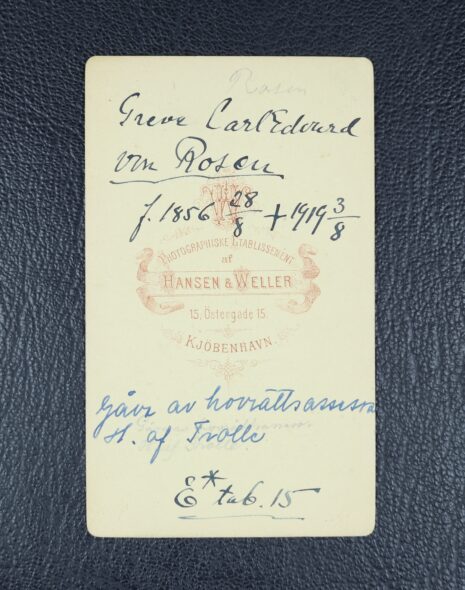 Rosen
Greve Carl Edvard
von Rosen
f. 1856 28/8 + 1919 3/8
HW
PHOTOGRAPHISKE ETABLISSEMENT
af
HANSEN & WELLER
15. Östergade 15.
KJÖBENHAVN.
Gåva av hovrättsassessor
H. af Trolle
E* tab. 15